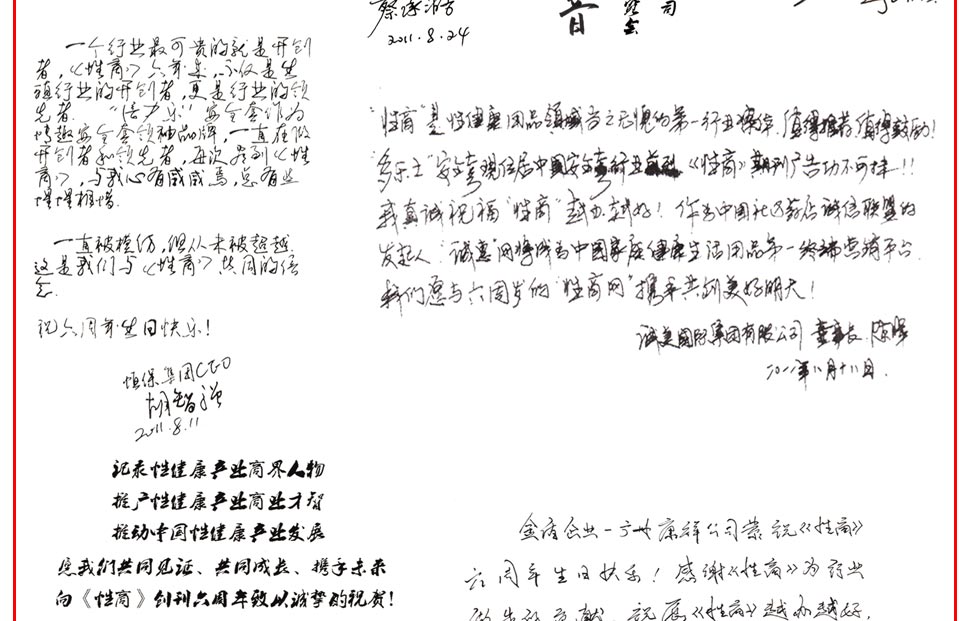 2011.8.24
一个行业最可贵的就是开创
者,《性商》六年来,不仅是生
殖行业的开创者,更是行业的领
先者. "倍力乐"安全套作为
情趣安全套领袖品牌,一直在做
开创者和领先者,再次看到《性
商》,与我心有戚戚焉,总有些
惺惺相惜.
一直被模仿,但从未被超越.
这是我们与《性商》共同的信
念.
祝六周年生日快乐!
恒保集团CEO
胡智强
2011.8.11
记录性健康产业商界人物
推产性健康产业商业才智
推动中国性健康产业发展
愿我们共同见证、共同成长、携手未来
向《性商》创刊六周年致以诚挚的祝贺!
"性商"是性健康用品领域当之无愧的第一行业媒体,值得推荐,值得鼓励!
多乐士"安全套现位居中国安全套行业前列《性商》期刊广告功不可抹!!
我真诚祝福"性商"越办越好!作为中国社区药店诚信联盟的
发起人"诚惠"网将成为中国家庭健康生活用品第一终端营销平台.
我们愿与六周岁的"性商网"携手共创美好明天!
诚美国际集团有限公司 董事长
金活企业-广州康祥公司恭祝《性商》
六周年生日快乐!感谢《性商》为药业
祝愿《性商》越办越好,